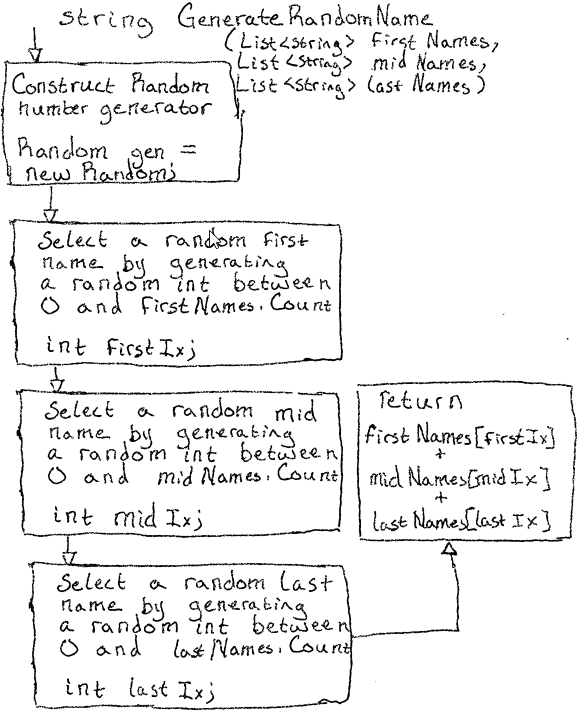 string GenerateRandomName
(List<string> firstNames,
List<string> midNames,
List<string> lastNames)
Construct Random
number generator
Random gen =
new Random;
Select a random first
name by generating
a random int between
0 and firstNames.Count
int firstIx;
Select a random mid
name by generating
a random int between
0 and midNames.Count
int midIx;
Select a random last
name by generating
a random int between
0 and lastNames.Count
int lastIx;
return
firstNames[firstIx]
+
midNames[midIx]
+
lastNames[lastIx]